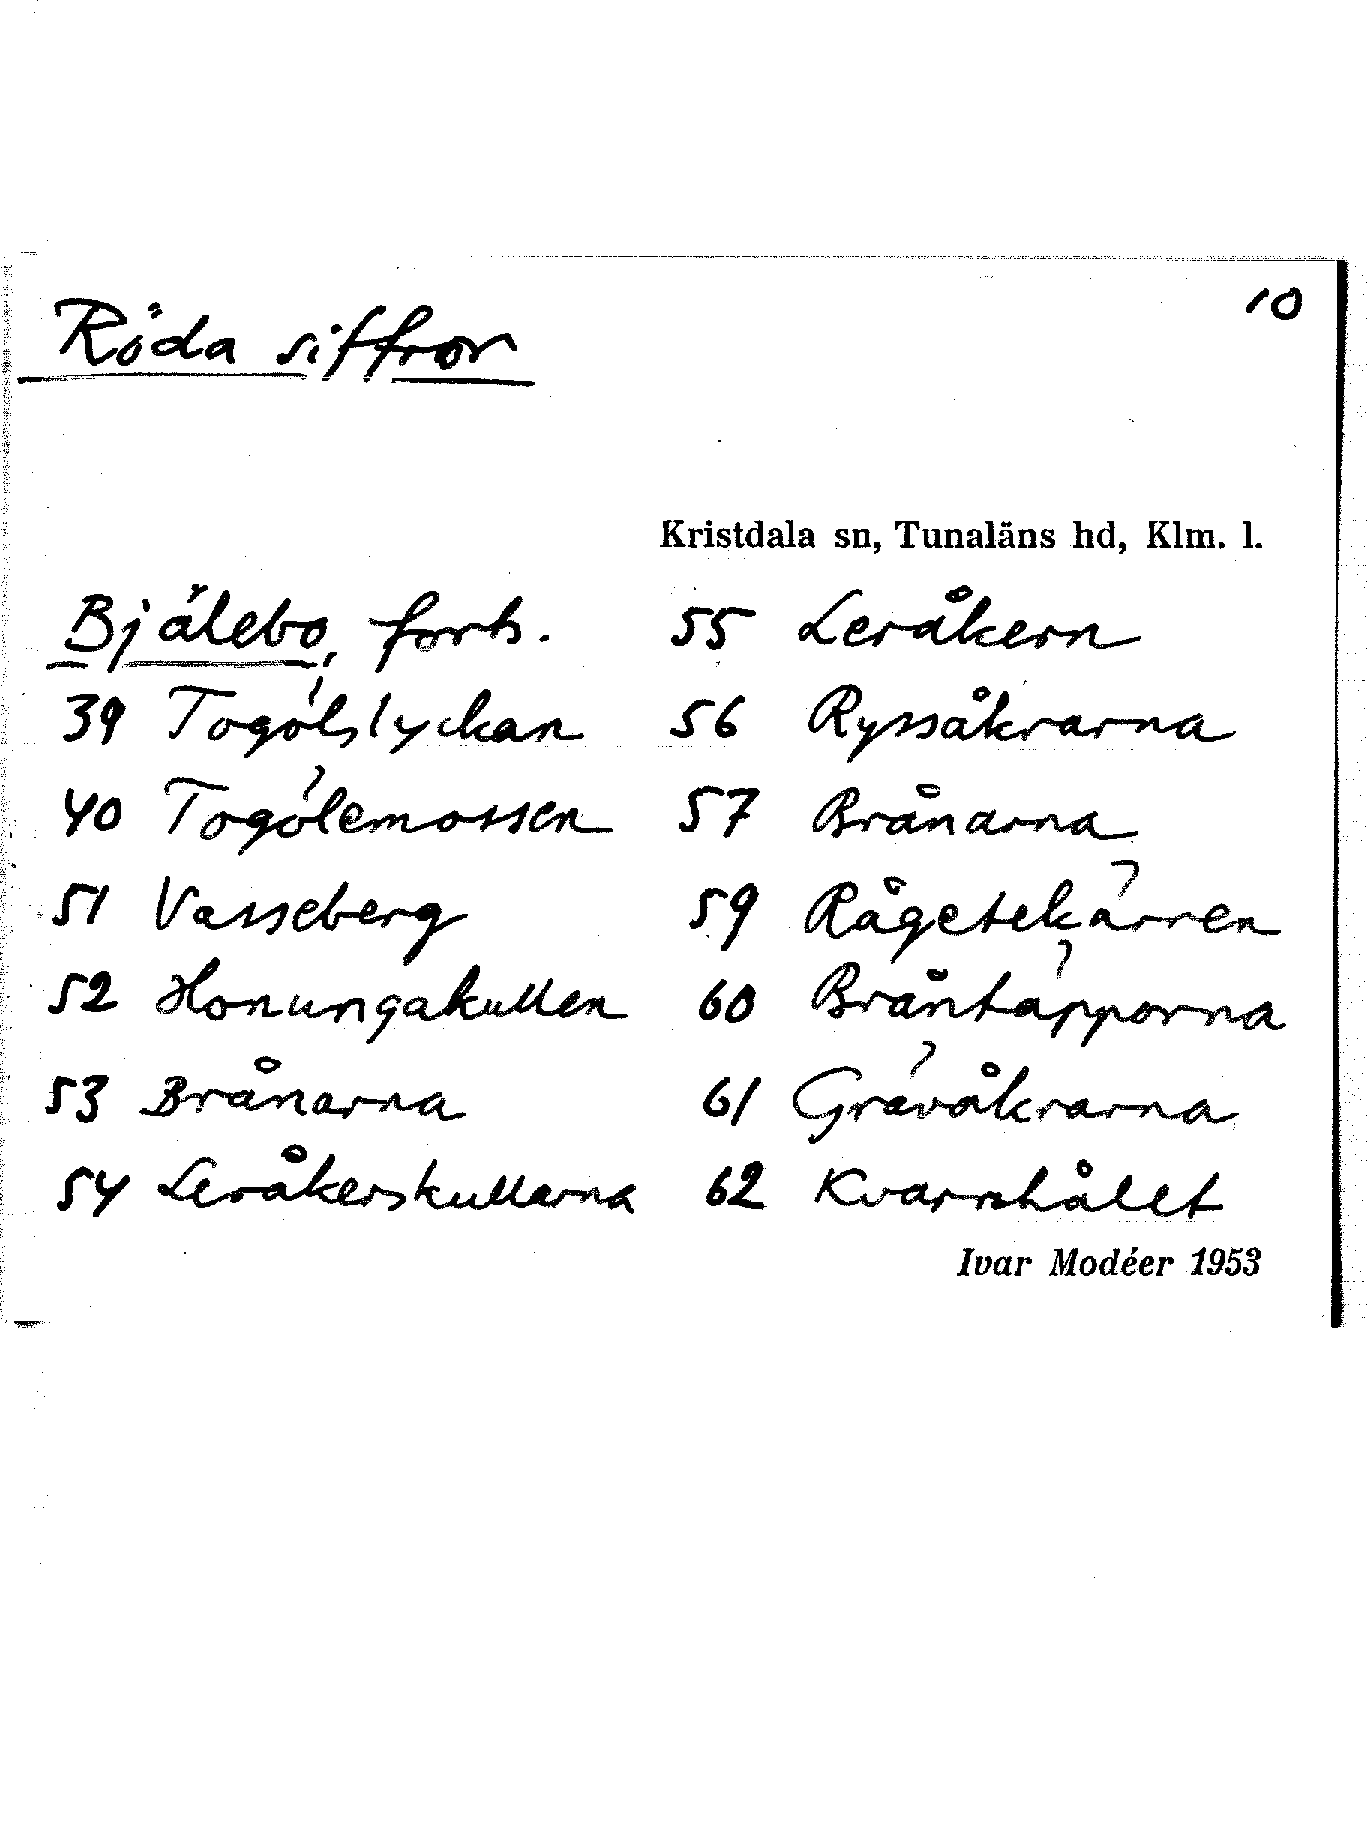 10
Röda siffror
Kristdala sn, Tunaläns hd, Klm. l.
Bjälebo, forts.
39 Togölslyckan
40 Togölemossen
51 Vasseberg
52 Honungakullen
53 Brånarna
54 Leråkerskullarna
55 Leråkern
56 Ryssåkrarna
57 Brånarna
59 Rågetekärren
60 Bråntäpporna
61 Grävåkrarna
62 Kvarnhålet
Ivar Modéer 1953